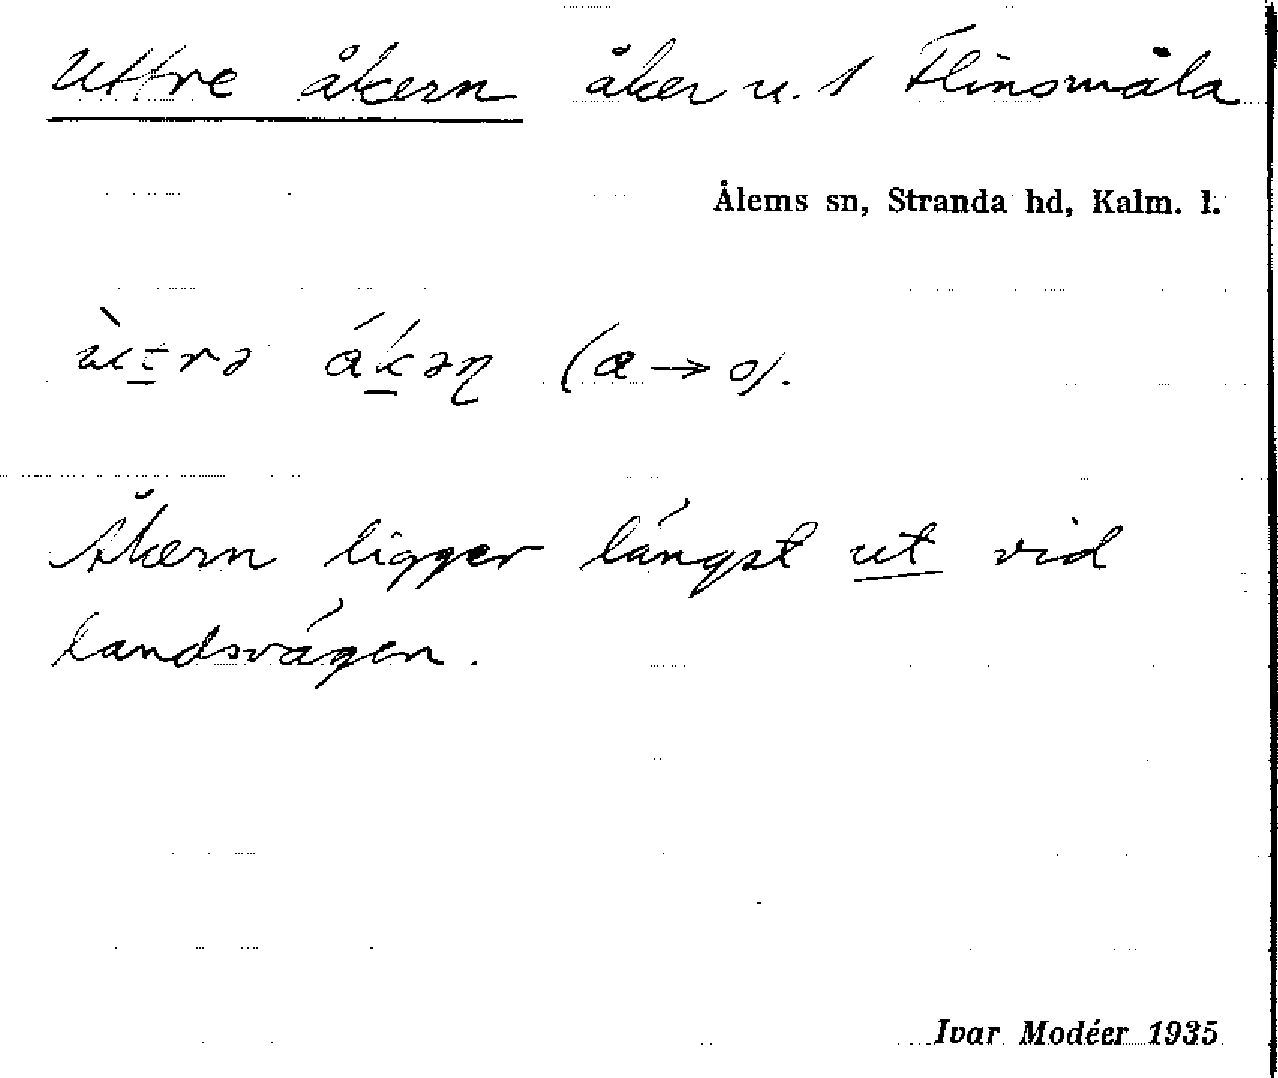 Uttre åkern åker u. 1 Flinsmåla
Ålems sn, Stranda hd, Kalm. l.
(a → o).
Åkern ligger längst ut vid
landsvägen.
Ivar Modéer 1935